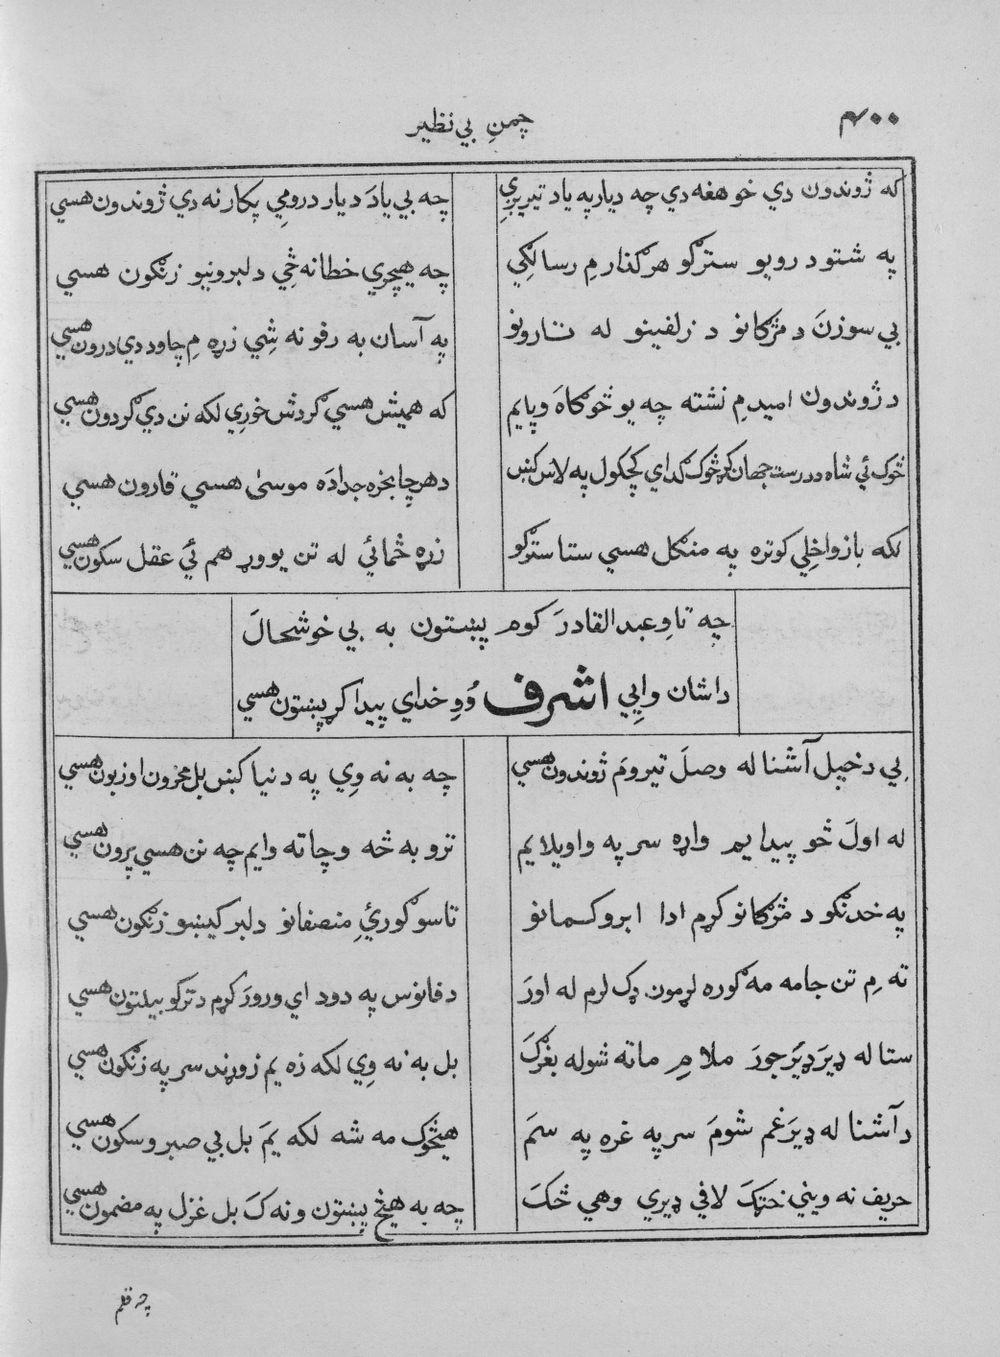 ۴۰۰
چمنِ بي نظير
که ژوندون دي خو هغه دي چه ديار په ياد تيريږي
چه بي يادَ ديار درومي پکار نه دي ژوندون هسي
په شتو د رويو سترګو هر ګذار مِ رسا لګي
چه هيچري خطا نه ځي د لبرونيو زنګون هسي
بي سوزنَ د مژګانو د زلفينو له تارونو
په آسان به رفو نه شِي زړه مِ چاود دي درون هسي
د ژوندون اميد مِ نشته چه يو څو ګاهَ وپايم
که هميش هسي ګردش خوري لکه نن دي ګردون هسي
څوک ئي شاه د درست جهان کړ څوک ګداي کچکول په لاس کښ
د هر چا بخره جدا دَه موسىٰ هسي قارون هسي
لکه باز واخلِي کوتره په منګل هسي ستا سترګو
زړه ځمائي له تن يووړ هم ئي عقل سکون هسي
چه تا وِ عبدالقادرَ کوم پښتون به بي خوشحالَ
دا شان وايي اشرف وُوِ خداي پيدا کړ پښتون هسي
بي د خپل آشنا له وصلَ تيرومَ ژوندون هسي
چه به نه وِي په دنيا کښ بل محزون او زبون هسي
له اولَ څو پيدا يم واړه سر په واويلا يم
ترو به څه و چا ته وايم چه نن هسي پرون هسي
په خدنګو د مژګانو کړم ادا ابرو کمانو
تاسو ګورئِ منصفانو دلبر کيښو زنګون هسي
ته مِ تن جامه مه ګوره لړمون ډک لرم له اورَ
د فانوس په دود اي ورورَ کړم د ترکو بيلتون هسي
ستا له ډيرَ ډيرَ جورَ ملا مِ ماته شوله بغرګَ
بل به نه وِي لکه زه يم زوړند سر په زنګون هسي
د آشنا له ډيرَ غم شومَ سر په غره په سمَ
هيڅوک مه شه لکه يمَ بل بي صبر و سکون هسي
حريف نه ويني خټکَ لافي ډيري وهي څکَ
چه به هيڅ پښتون ونه کَ بل غزل په مضمون هسي
چه قلم